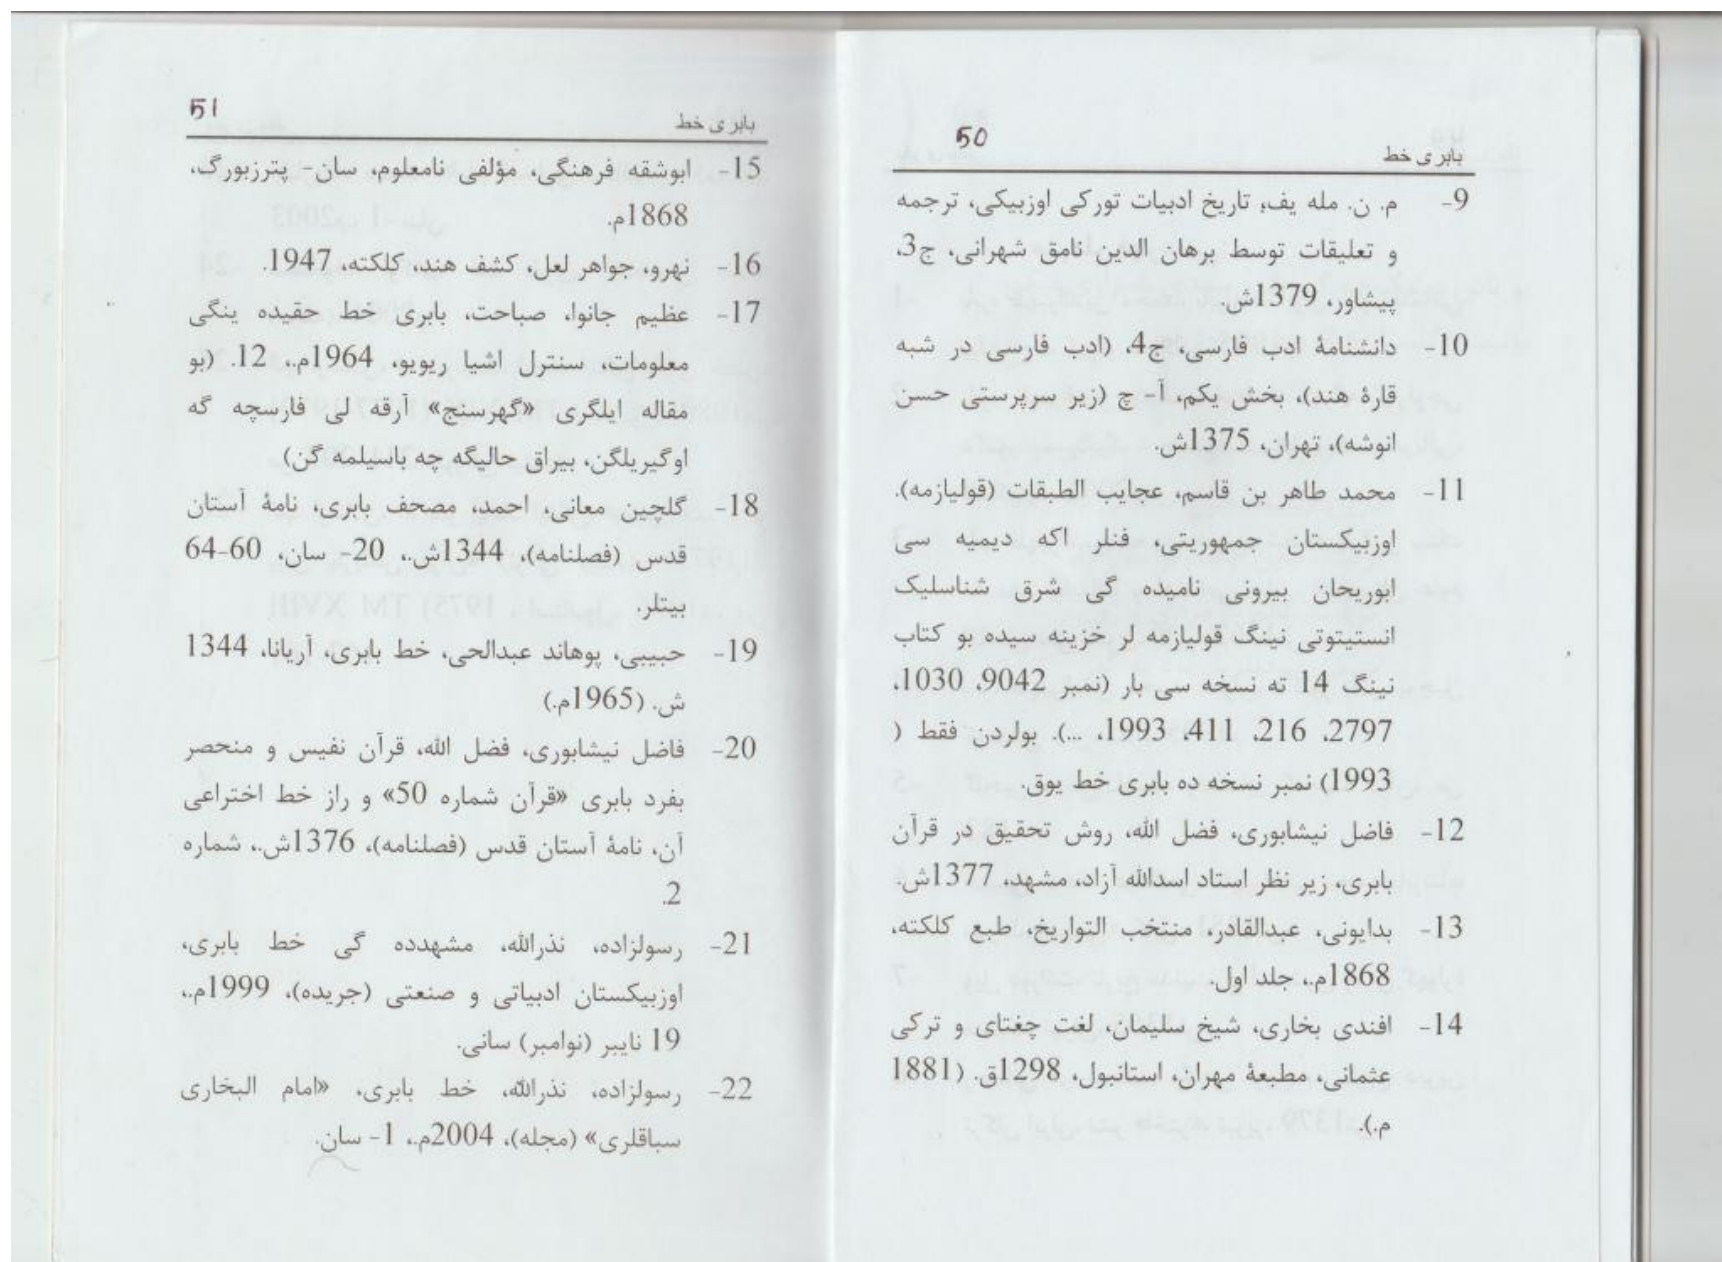 50
بابری خط
9- م. ن. مله یف، تاریخ ادبیات تورکی اوزبیکی، ترجمه
و تعلیقات توسط برهان الدین نامق شهرانی، ج3،
پیشاور، 1379ش.
10- دانشنامۀ ادب فارسی، ج4، (ادب فارسی در شبه
قارۀ هند)، بخش یکم، آ- چ (زیر سرپرستی حسن
انوشه)، تهران، 1375ش.
11- محمد طاهر بن قاسم، عجایب الطبقات (قولیازمه).
اوزبیکستان جمهوریتی، فنلر اکه دیمیه سی
ابوریحان بیرونی نامیده گی شرق شناسلیک
انستیتوتی نینگ قولیازمه لر خزینه سیده بو کتاب
نینگ 14 ته نسخه سی بار (نمبر 9042، 1030،
2797، 216، 411، 1993، ...). بولردن فقط (
1993) نمبر نسخه ده بابری خط یوق.
12- فاضل نیشابوری، فضل الله، روش تحقیق در قرآن
بابری، زیر نظر استاد اسدالله آزاد، مشهد، 1377ش.
13- بدایونی، عبدالقادر، منتخب التواریخ، طبع کلکته،
1868م.، جلد اول.
14- افندی بخاری، شیخ سلیمان، لغت چغتای و ترکی
عثمانی، مطبعۀ مهران، استانبول، 1298ق. (1881
م.).
51
بابری خط
15- ابوشقه فرهنگی، مؤلفی نامعلوم، سان- پترزبورگ،
1868م.
16- نهرو، جواهر لعل، کشف هند، کلکته، 1947.
17- عظیم جانوا، صباحت، بابری خط حقیده ینگی
معلومات، سنترل اشیا ریویو، 1964م.، 12. (بو
مقاله ایلگری «گهرسنج» آرقه لی فارسچه گه
اوگیریلگن، بیراق حالیگه چه باسیلمه گن)
18- گلچین معانی، احمد، مصحف بابری، نامۀ آستان
قدس (فصلنامه)، 1344ش.، 20- سان، 60-64
بیتلر.
19- حبیبی، پوهاند عبدالحی، خط بابری، آریانا، 1344
ش. (1965م.)
20- فاضل نیشابوری، فضل الله، قرآن نفیس و منحصر
بفرد بابری «قرآن شماره 50» و راز خط اختراعی
آن، نامۀ آستان قدس (فصلنامه)، 1376ش.، شماره
2.
21- رسولزاده، نذرالله، مشهدده گی خط بابری،
اوزبیکستان ادبیاتی و صنعتی (جریده)، 1999م.،
19 نایبر (نوامبر) سانی.
22- رسولزاده، نذرالله، خط بابری، «امام البخاری
سباقلری» (مجله)، 2004م.، 1- سان.